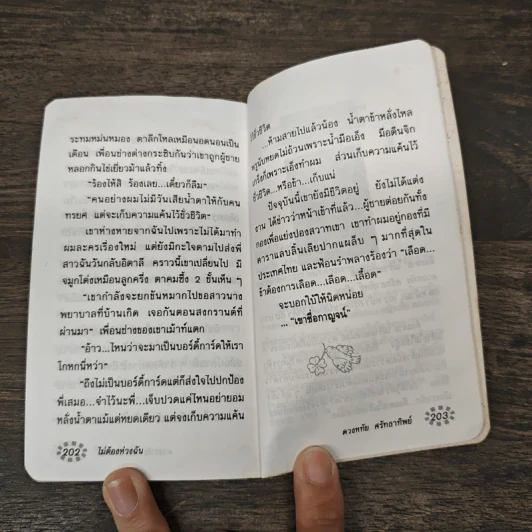 ระทมหม่นหมอง ตาลึกโหลเหมือนอดนอนเป็น
เดือน เพื่อนช่างต่างกระซิบกันว่าเขาถูกผู้ชาย
หลอกกินไข่เยี่ยวม้าแล้วทิ้ง
"ร้องไห้สิ ร้องเลย...เดี๋ยวก็ลืม"
"คนอย่างผมไม่มีวันเสียน้ำตาให้กับคน
ทรยศ แต่จะเก็บความแค้นไว้ชั่วชีวิต"
เขาห่างหายจากฉันไปเพราะไม่ได้มาทำ
ผมละครเรื่องใหม่ แต่ยังมีกะใจตามไปส่งพี่
สาวฉันวันกลับอิตาลี คราวนี้เขาเปลี่ยนไป มี
จมูกโด่งเหมือนลูกครึ่ง ตาคมซึ้ง 2 ชั้นเห็น ๆ
"เขากำลังจะยกขันหมากไปขอสาวนาง
พยาบาลที่บ้านเกิด เจอกันตอนสงกรานต์ที่
ผ่านมา" เพื่อนช่างของเขาเม้าท์แตก
"อ้าว...ไหนว่าจะมาเป็นบอร์ดี้การ์ดให้เรา
โกหกนี่หว่า"
"ถึงไม่เป็นบอร์ดี้การ์ดแต่ก็ส่งใจไปปกป้อง
พี่เสมอ...จำไว้นะพี่...เจ็บปวดแค่ไหนอย่ายอม
หลั่งน้ำตาแม้แต่หยดเดียว แต่จงเก็บความแค้น
202 ไม่ต้องห่วงฉัน
ไว้ชั่วชีวิต
...ห้ามสายไปแล้วน้อง น้ำตาข้าหลั่งไหล
พรูนับหยดไม่ถ้วนเพราะน้ำมือเอ็ง มือตีนจิก
เกร็งก็เพราะเอ็งทำผม ส่วนเก็บความแค้นไว้
ชั่วชีวิต...หรือข้า...เก็บแน่
ปัจจุบันนี้เขายังมีชีวิตอยู่ ยังไม่ได้แต่ง
งาน ได้ข่าวว่าหน้าเข้าที่แล้ว...ผู้ชายต่อยกันทั้ง
กองเพื่อแย่งปองสวาทเขา เขาทำผมอยู่กองที่มี
ดาราแลบลิ้นเลียปากแผล็บ ๆ มากที่สุดใน
ประเทศไทย และฟ้อนรำพลางร้องว่า "เลือด...
ข้าต้องการเลือด...เลือด...เลื้อด"
จะบอกใบ้ให้นิดหน่อย
... "เขาชื่อกาญจน์"
ดวงหทัย ศรัทธาทิพย์ 203